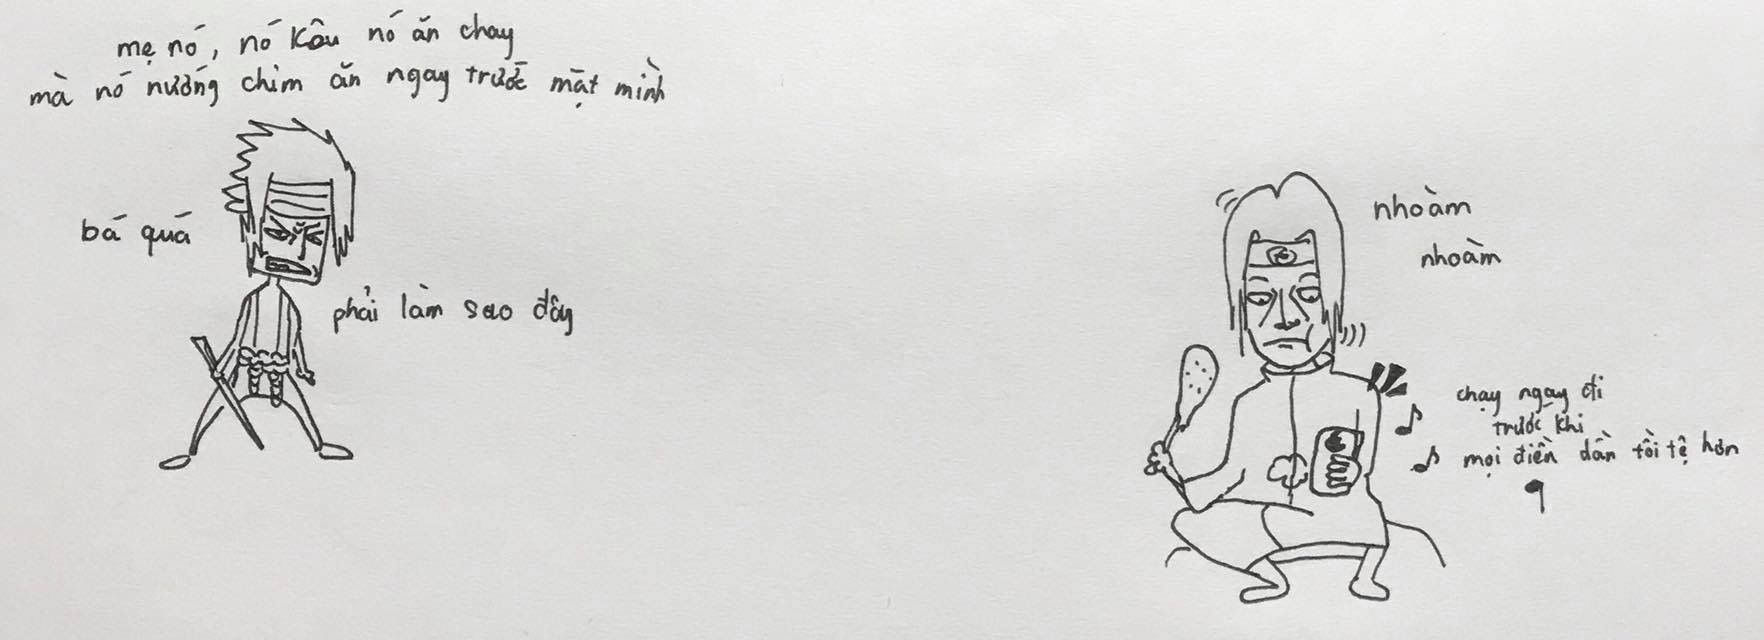 mẹ nó, nó kêu nó ăn chay
mà nó nướng chim ăn ngay trước mặt mình
bá quá
phải làm sao đây
nhoàm
nhoàm
chạy ngay đi
trước khi
mọi điền dần tồi tệ hơn